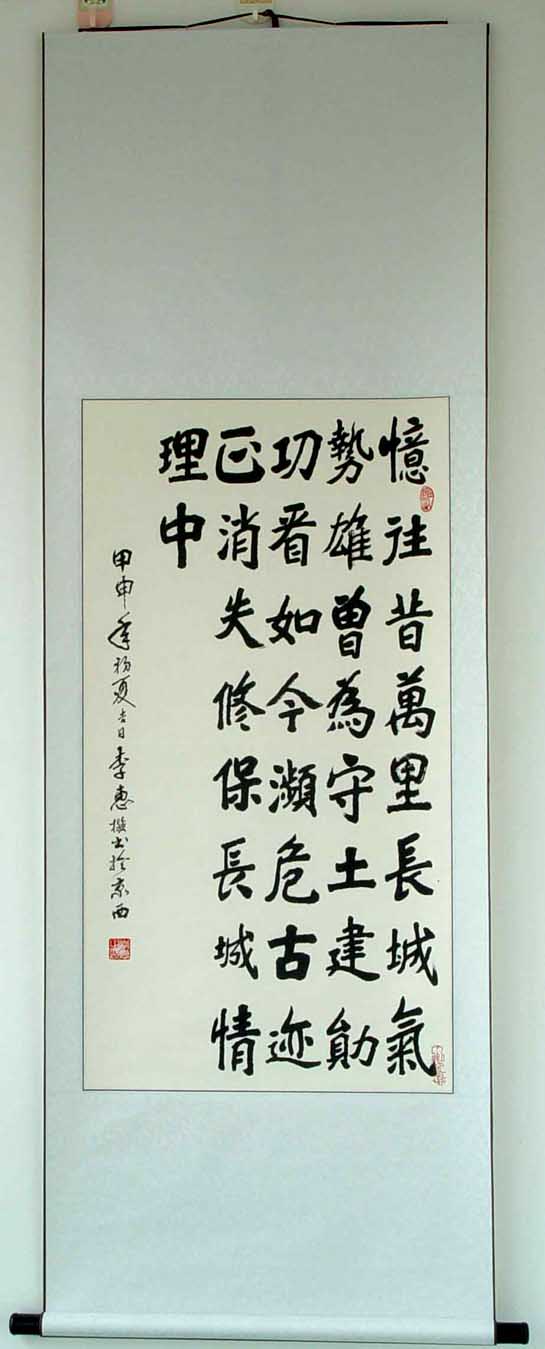 憶往昔萬里長城氣
勢雄曾為守土建勛
功看如今瀕危古迹
正消失修保長城情
理中
甲申年初夏吉日李惠撰書於京西